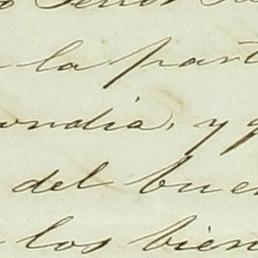 o Señor
la part
ondia, y g
del buen
los bien